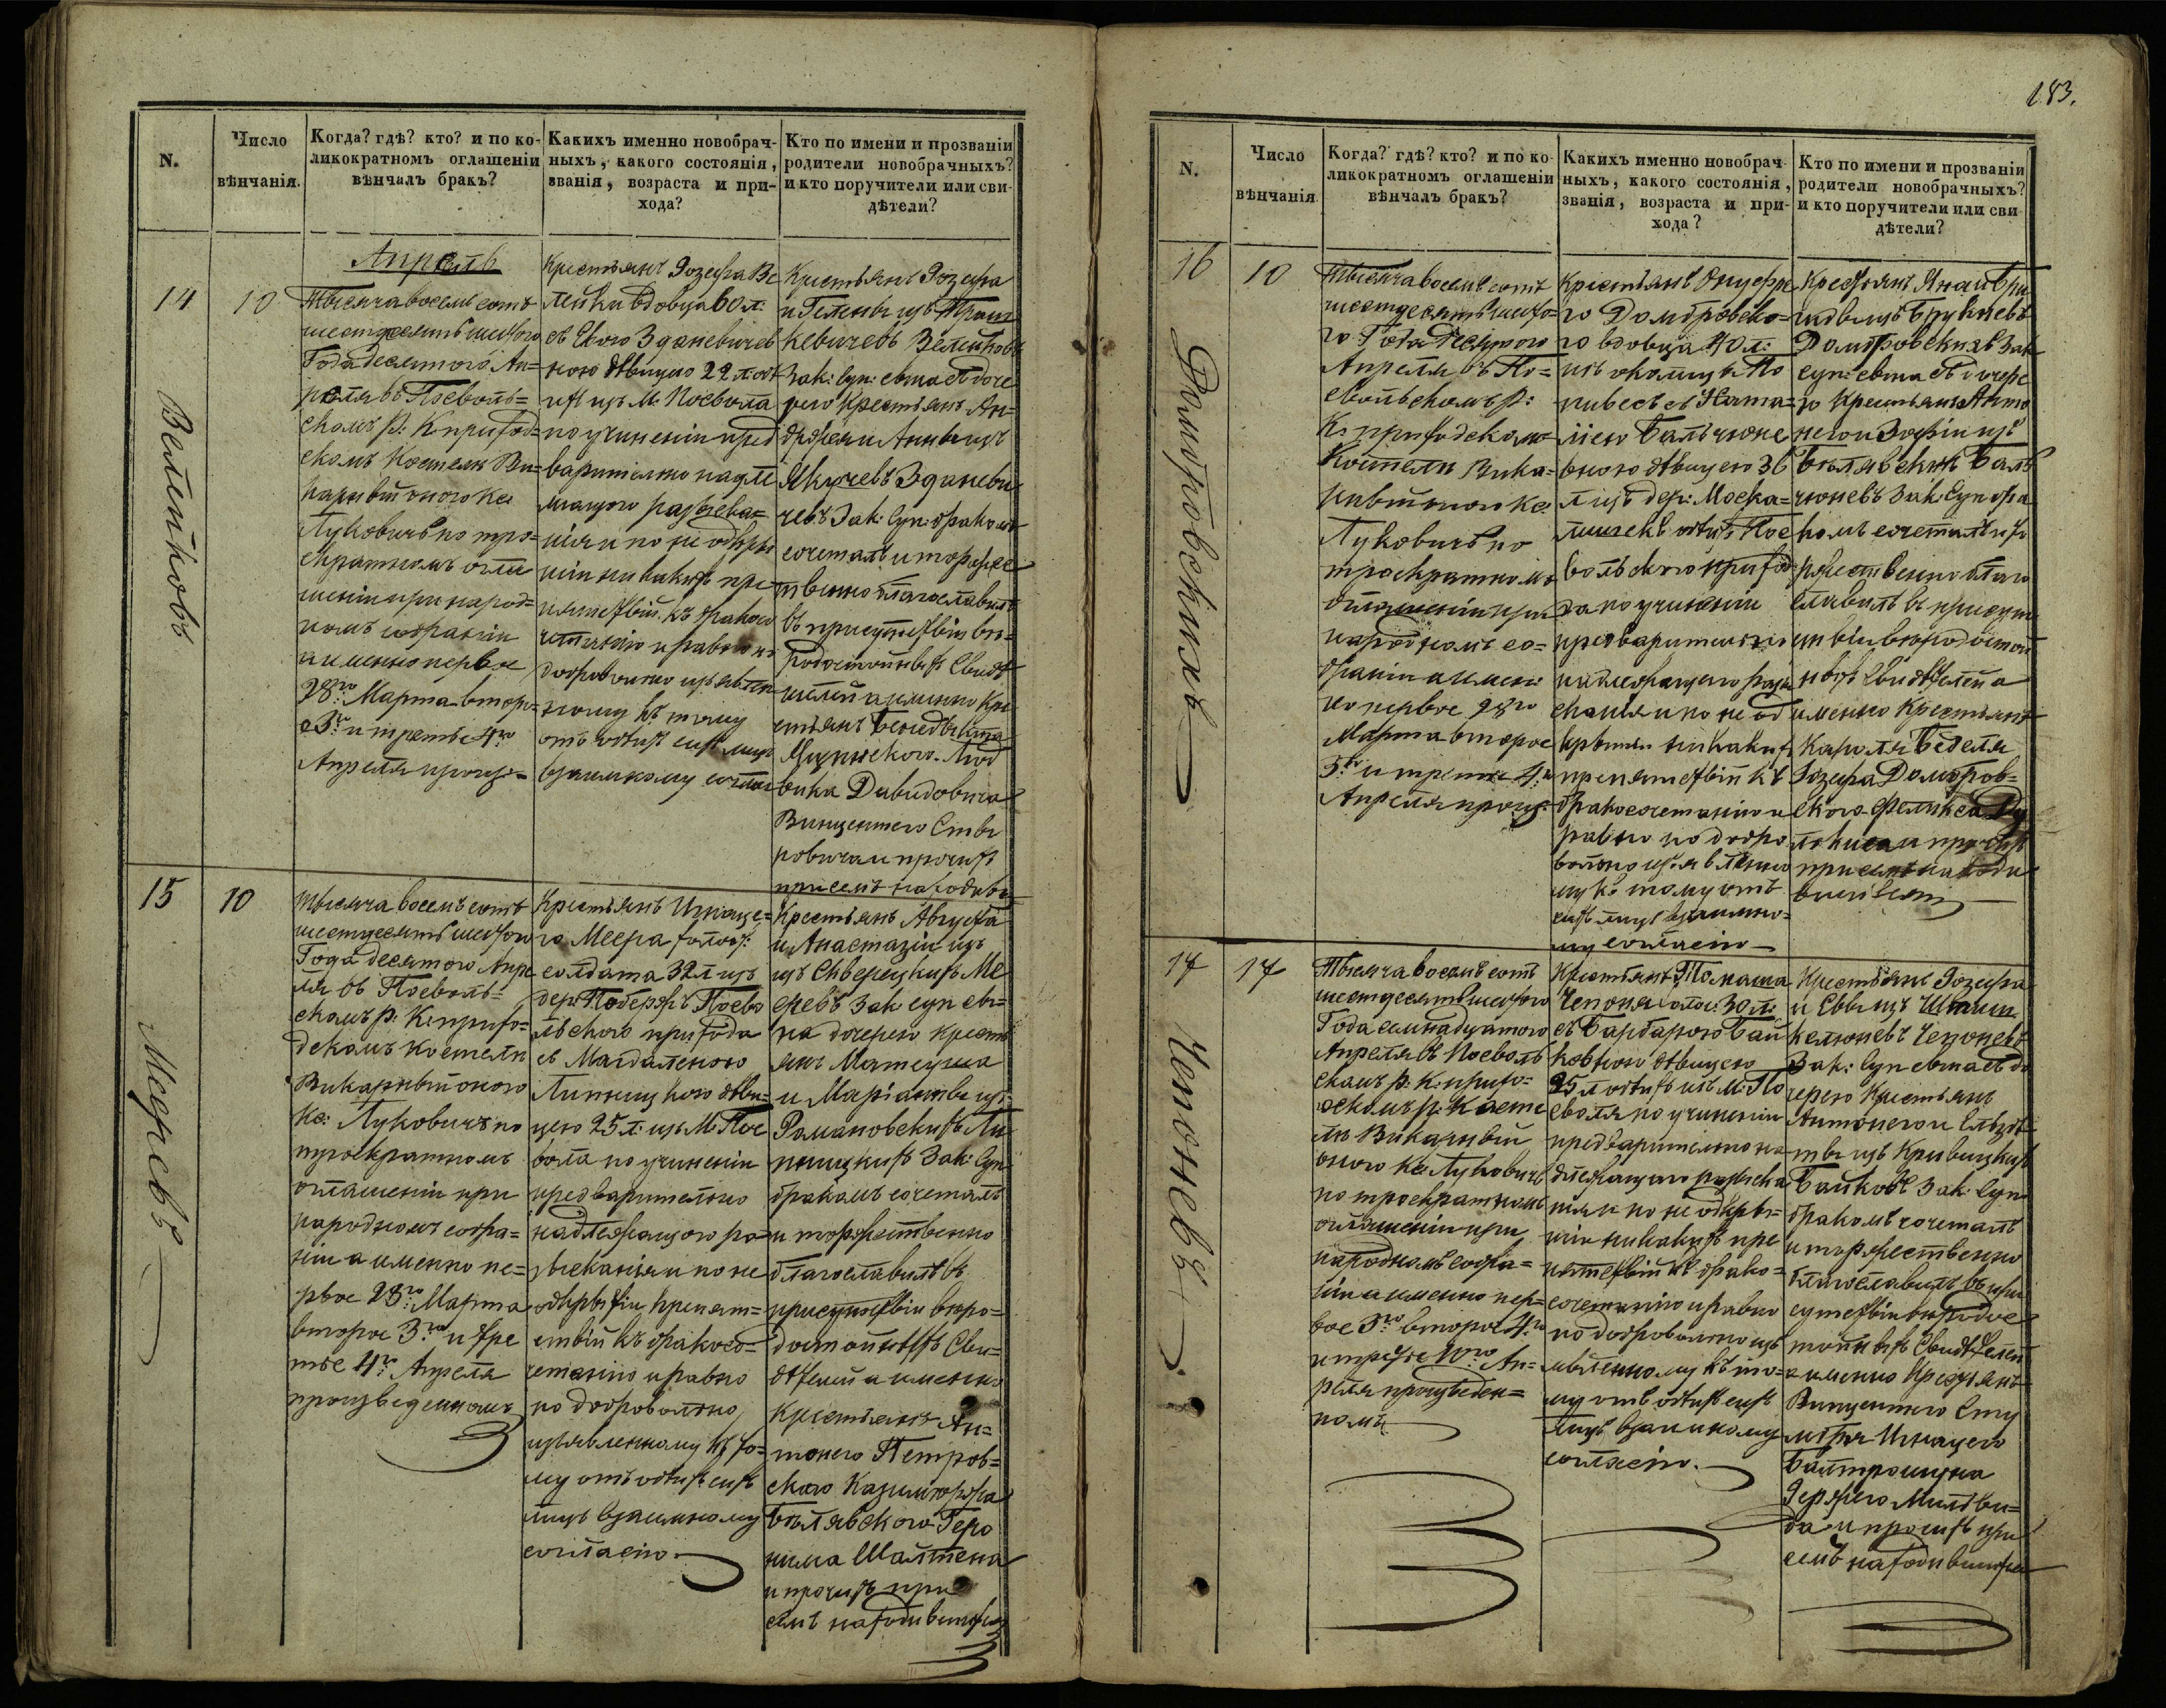 183.
N.
Число
вѣнчанія.
Когда? гдѣ? кто? и по ко-
ликократномъ оглашеніи
вѣнчалъ бракъ?
Какихъ именно новобрач-
ныхъ, какого состоянія,
званія, возраста и при-
хода?
Кто по имени и прозваніи
родители новобрачныхъ?
и кто поручители или сви-
дѣтели?
14
10
Велейковъ
Апрель
Тысяча восемь сотъ
шестдесятъ шестого
Года десятого Ап-
реля въ Посволь-
скомъ Р: К приход-
скомъ Костеле Ви-
Луковичъ по тро-
екратномъ огла
шеніи при народ-
номъ собраніи
а именно первое
28го Марта второ-
е 3го и третье 4го
Апреля произв-
Крестьянъ Іозефа Ве
лейки вдовца 60 л:
съ Евою Зданевичев
ною дѣвицею 22 л: обѣ
ихъ изъ М. Посволя
по учиненіи пред
варительно надле
жащого разыска-
нія и по не откры
тіи никакихъ пре-
пятствій къ брако
четанію и равно по
добровольно изъявлен
ному къ тому
отъ обѣихъ сихъ лицъ
взаимному соглас
Крестьянъ Іозефа
и Гелены изъ
кевичевъ Велейковъ
Зак: Суп: сына съ доче
рею Крестьянъ Ан-
држея и Анны изъ
Якучевъ Зданеви
чевъ Зак: Суп: бракомъ
сочеталъ и торжес
твенно благословилъ
въ присутствіи вѣ-
родостойныхъ Свидѣ
телей а именно Кре
стьянъ Бенедыкта
Люд
вика Давидовича
Винцентего Ставы
ровича и прочихъ
при семъ находивш
15
10
Мееревъ
Тысяча восемь сотъ
шестдесятъ шестого
Года десятого Апре
ля въ Посволь-
скомъ Р: К: прихо-
дскомъ Костеле
Викарный оного
Кс: Луковичъ по
троекратномъ
оглашеніи при
народномъ собра-
ніи а именно пе-
рвое 28го Марта
второе 3го и тре
тье 4го Апреля
произведенномъ
Крестьянъ Игнаце-
го Меера холост:
солдата 32 л изъ
дер: Поберже Посво
льского прихода
съ Магдаленою
Липницкою дѣви-
цею 25 л: изъ М Пос
воля по учиненіи
предварительно
надлежащого ра-
зысканія и по не
открытіи препят-
ствій къ бракосо-
четанію и равно
по добровольно
изъявленному къ то-
му отъ обѣихъ сихъ
лицъ взаимному
согласію.
Крестьянъ Августа
и Анастазіи изъ
изъ Скверецкихъ Ме
еревъ Зак: суп сы-
на дочерею Кресть
янъ Матеуша
и Маріанны изъ
Романовскихъ Ли
пницкихъ Зак: Суп:
бракомъ сочеталъ
и торжественно
благославилъ въ
присутствіи вѣро-
достойныхъ Сви-
дѣтелей а именно
Крестьянъ Ан-
тонего Петров-
скаго Казимержа
Бѣлявского Геро
нима Шалтена
и прочихъ при
семъ находившихся
N.
Число
вѣнчанія
Когда? гдѣ? кто? и по ко-
ликократномъ оглашеніи
вѣнчалъ бракъ?
Какихъ именно новобрач-
ныхъ, какого состоянія,
званія, возраста и при-
хода?
Кто по имени и прозваніи
родители новобрачныхъ?
и кто поручители или сви-
дѣтели?
16
10
Домбровскихъ
Тысяча восемь сотъ
шестдесятъ шесто-
го Года Десятого
Апреля въ По-
свольскомъ Р:
К: приходскомъ
Костели Вика-
рный оного Кс:
Луковичъ по
троекратномъ
оглашеніи при
народномъ со-
браніи а имен
но первое 28го
Марта второе
3го и третіе 4го
Апреля произ:
Крестьянъ Онуфре
го Домбровско-
го вдовца 40 л:
изъ околицы По
съ Ната-
ліею Бальчюне
вною дѣвицею 36
л изъ дер: Моска-
лишекъ обѣихъ Пос
вольского прихо
да по учиненіи
предварительно
надлежащего разы
сканія и по не от
крытіи никакихъ
препятствій къ
бракосочетанію и
равно по добро
вольно изъявленно
му къ тому отъ
сихъ лицъ взаимно-
му согласію
Крестьянъ Яна и Бри
гиды изъ Брукневъ
Домбровскихъ Зак
суп: сына съ дочере
ю Крестьянъ Анто
него и Зофіи изъ
Бѣлявскихъ Баль
чюневъ Зак: Суп бра
комъ сочеталъ и то
ржественно благо
славилъ въ присут
ствіи вѣродостой
ныхъ Свидѣтелей а
именно Крестьянъ
Кароля Беделя
Іозефа Домбров-
ского Феликса
и прочихъ
при семъ находи
вшихся
17
17
Чепоневъ
Тысяча восемь сотъ
шестдесятъ шестого
Года семнадцатого
Апреля въ Посволь
скомъ Р. К: прихо-
дскомъ р: Косте
ле Викарный
оного Кс Луковичъ
по троекратномъ
оглашеніи при
народномъ собра-
ніи а именно пер-
вое 3го второе 4го
и третье 10го Ап-
реля произведен-
номъ
Крестьянъ Томаша
Чепоня холос: 30 л:
съ Барбарою Бай
ковною дѣвицею
25 л обѣихъ изъ М: По
своля по учиненіи
предварительно на
длежащаго разыска
нія и по не откры-
тіи никакихъ пре
пятствій къ брако-
сочетанію и равно
по добровольно изъ
явленному къ то-
му отъ обѣихъ сихъ
лицъ взаимному
согласію.
Крестьянъ Іозефа
и Евы изъ
Чепоневъ
Зак: Суп сына съ до
черею Крестьянъ
Антонего и Ельзбе-
ты изъ Кривицкихъ
Байковъ Зак: Суп
бракомъ сочеталъ
и торжественно
благославилъ въ при
сутствіи вѣродос
тойныхъ Свидѣтелей
а именно Крестьянъ
Винцентего
Игнацего
Балтрошуна
и прочихъ при
семъ находившихся